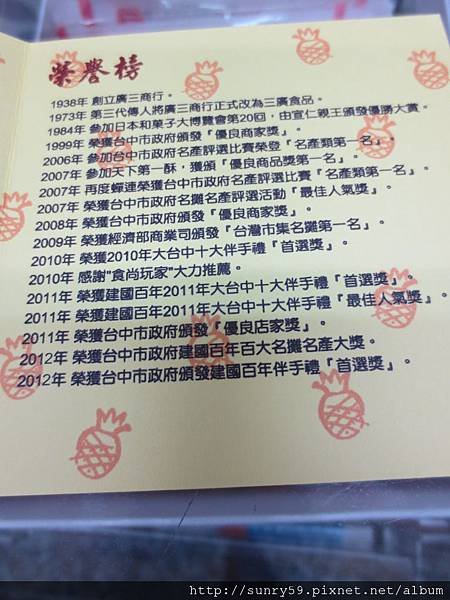 榮譽榜
1938年 創立廣三商行。
1973年 第三代傳人將廣三商行正式改為三廣食品。
1984年 參加日本和菓子大博覽會第20回，由宣仁親王頒發優勝大賞。
1999年 榮獲台中市政府頒發『優良商家獎』。
2006年 參加台中市政府名產評選比賽榮登『名產類第一名』。
2007年 參加天下第一酥，獲頒『優良商品獎第一名』。
2007年 再度蟬連榮獲台中市政府名產評選比賽『名產類第一名』。
2007年 榮獲台中市政府名攤名產評選活動『最佳人氣獎』。
2008年 榮獲台中市政府頒發『優良商家獎』。
2009年 榮獲經濟部商業司頒發『台灣市集名攤第一名』。
2010年 榮獲2010年大台中十大伴手禮『首選獎』。
2010年 感謝"食尚玩家"大力推薦。
2011年 榮獲建國百年2011年大台中十大伴手禮『首選獎』。
2011年 榮獲建國百年2011年大台中十大伴手禮『最佳人氣獎』。
2011年 榮獲台中市政府頒發『優良店家獎』。
2012年 榮獲台中市政府建國百年百大名攤名產大獎。
2012年 榮獲台中市政府頒發建國百年伴手禮『首選獎』。
http://sunry59.pixnet.net/album